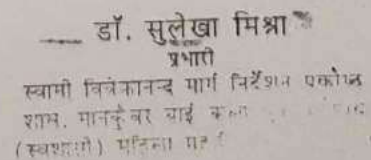 डॉ. सुलेखा मिश्रा
प्रभारी
स्वामी विवेकानन्द मार्ग निर्देशन प्रकोष्ठ
शास. मानकुँवर बाई कला
(स्वशासी) महिला